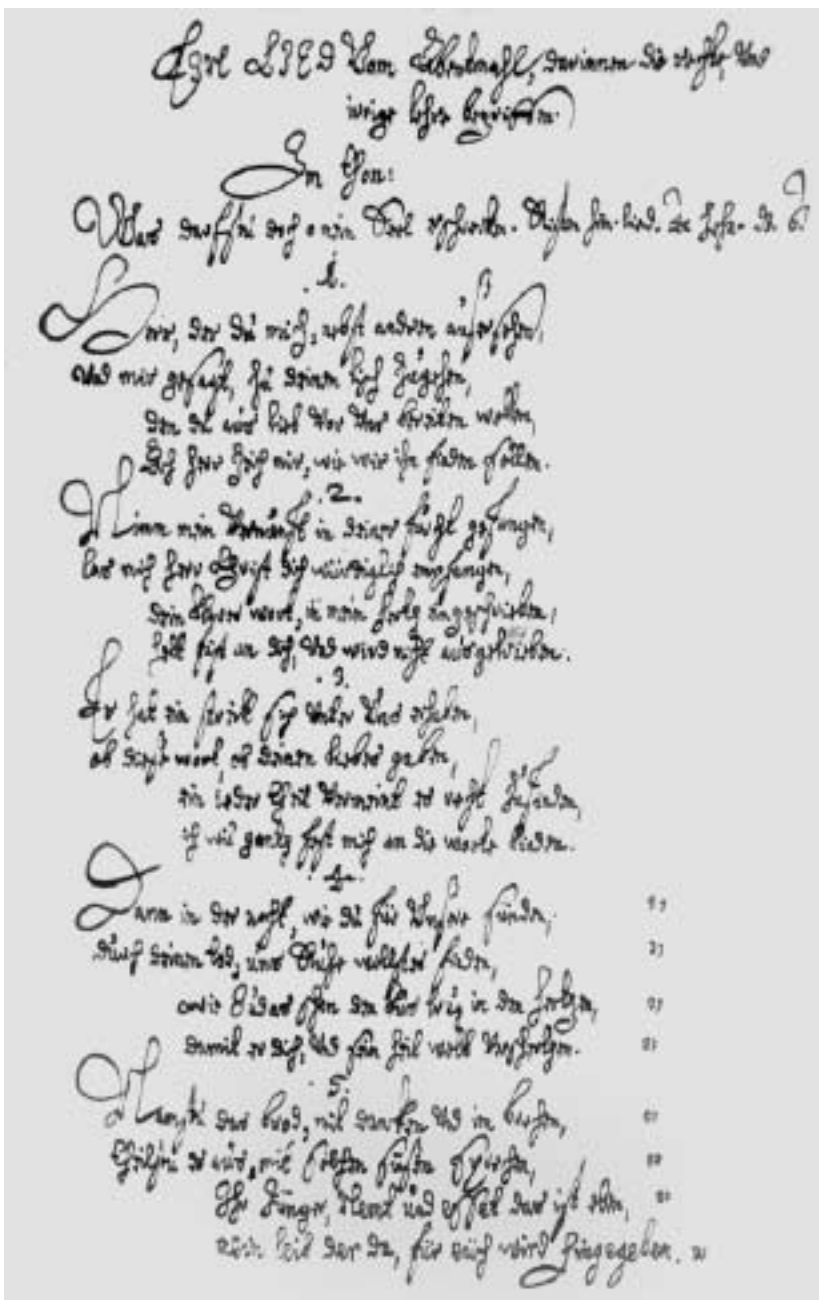 Eyn LIED Vom Abendmahl, darinnen die rechte, Vnd
irrige lehre begriffen.
Im Thon:
Was darffstu doch o mein Seel
.1.
Herr, der du mich, nebst andren außersehen,
Vnd mir gesagt, zu deinem tisch zugehen,
den du aus lieb vor Vns bereiten wollen,
Ach Herr zeich mir, wie wir ihn finden sollen.
.2.
Nimm mein Vernunft in deiner furcht gefangen,
las mich Herr Christ dich würdiglich empfangen,
dein theures wort, in mein hertz eingeschrieben,
halt fest an dich, Vnd wird nicht ausgetrieben.
.3.
Er hat ein streit sich Vnter Vns erhaben,
ob diese wort, ob deinen liebes gaben,
ein ieder theil Vermeint es recht zufinden,
ich wil gantz fest mich an die worte binden.
.4.
Dann in der nacht, wie du für Vnsere sünden,
durch deinen tod, uns ruhe wolltest finden,
wie Judas schon den im hertzen,
damit er dich, Vnd sein heil wolt Verschertzen.
.5.
Namstu das brod, mit dancken Vnd im brechen,
theilstu es aus, mit solchen süssen sprechen,
Ihr Jünger, Nemt und esset das ist eben,
mein leib der da, für euch wird hingegeben.